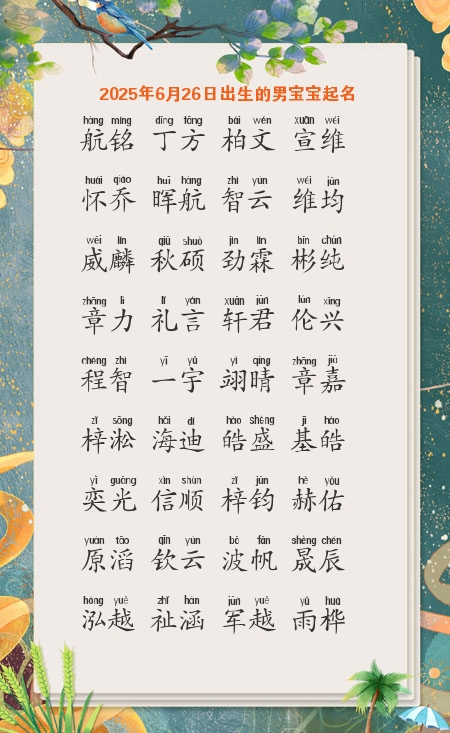 2025年6月26日出生的男宝宝起名
háng míng dīng fāng bǎi wén xuān wéi
航铭 丁方 柏文 宣维
huái qiáo huī háng zhì yún wéi jūn
怀乔 晖航 智云 维均
wēi lín qiū shuò jìn lín bīn chún
威麟 秋硕 劲霖 彬纯
zhāng lì lǐ yán xuān jūn lún xīng
章力 礼言 轩君 伦兴
chéng zhì yī yǔ yì qíng zhāng jiā
程智 一宇 翊晴 章嘉
zǐ sōng hǎi dí hào shèng jī hào
梓淞 海迪 皓盛 基皓
yì guāng xìn shùn zǐ jūn hè yòu
奕光 信顺 梓钧 赫佑
yuán tāo qīn yún bō fān shèng chén
原滔 钦云 波帆 晟辰
hóng yuè zhǐ hán jūn yuè yǔ huà
泓越 祉涵 军越 雨桦